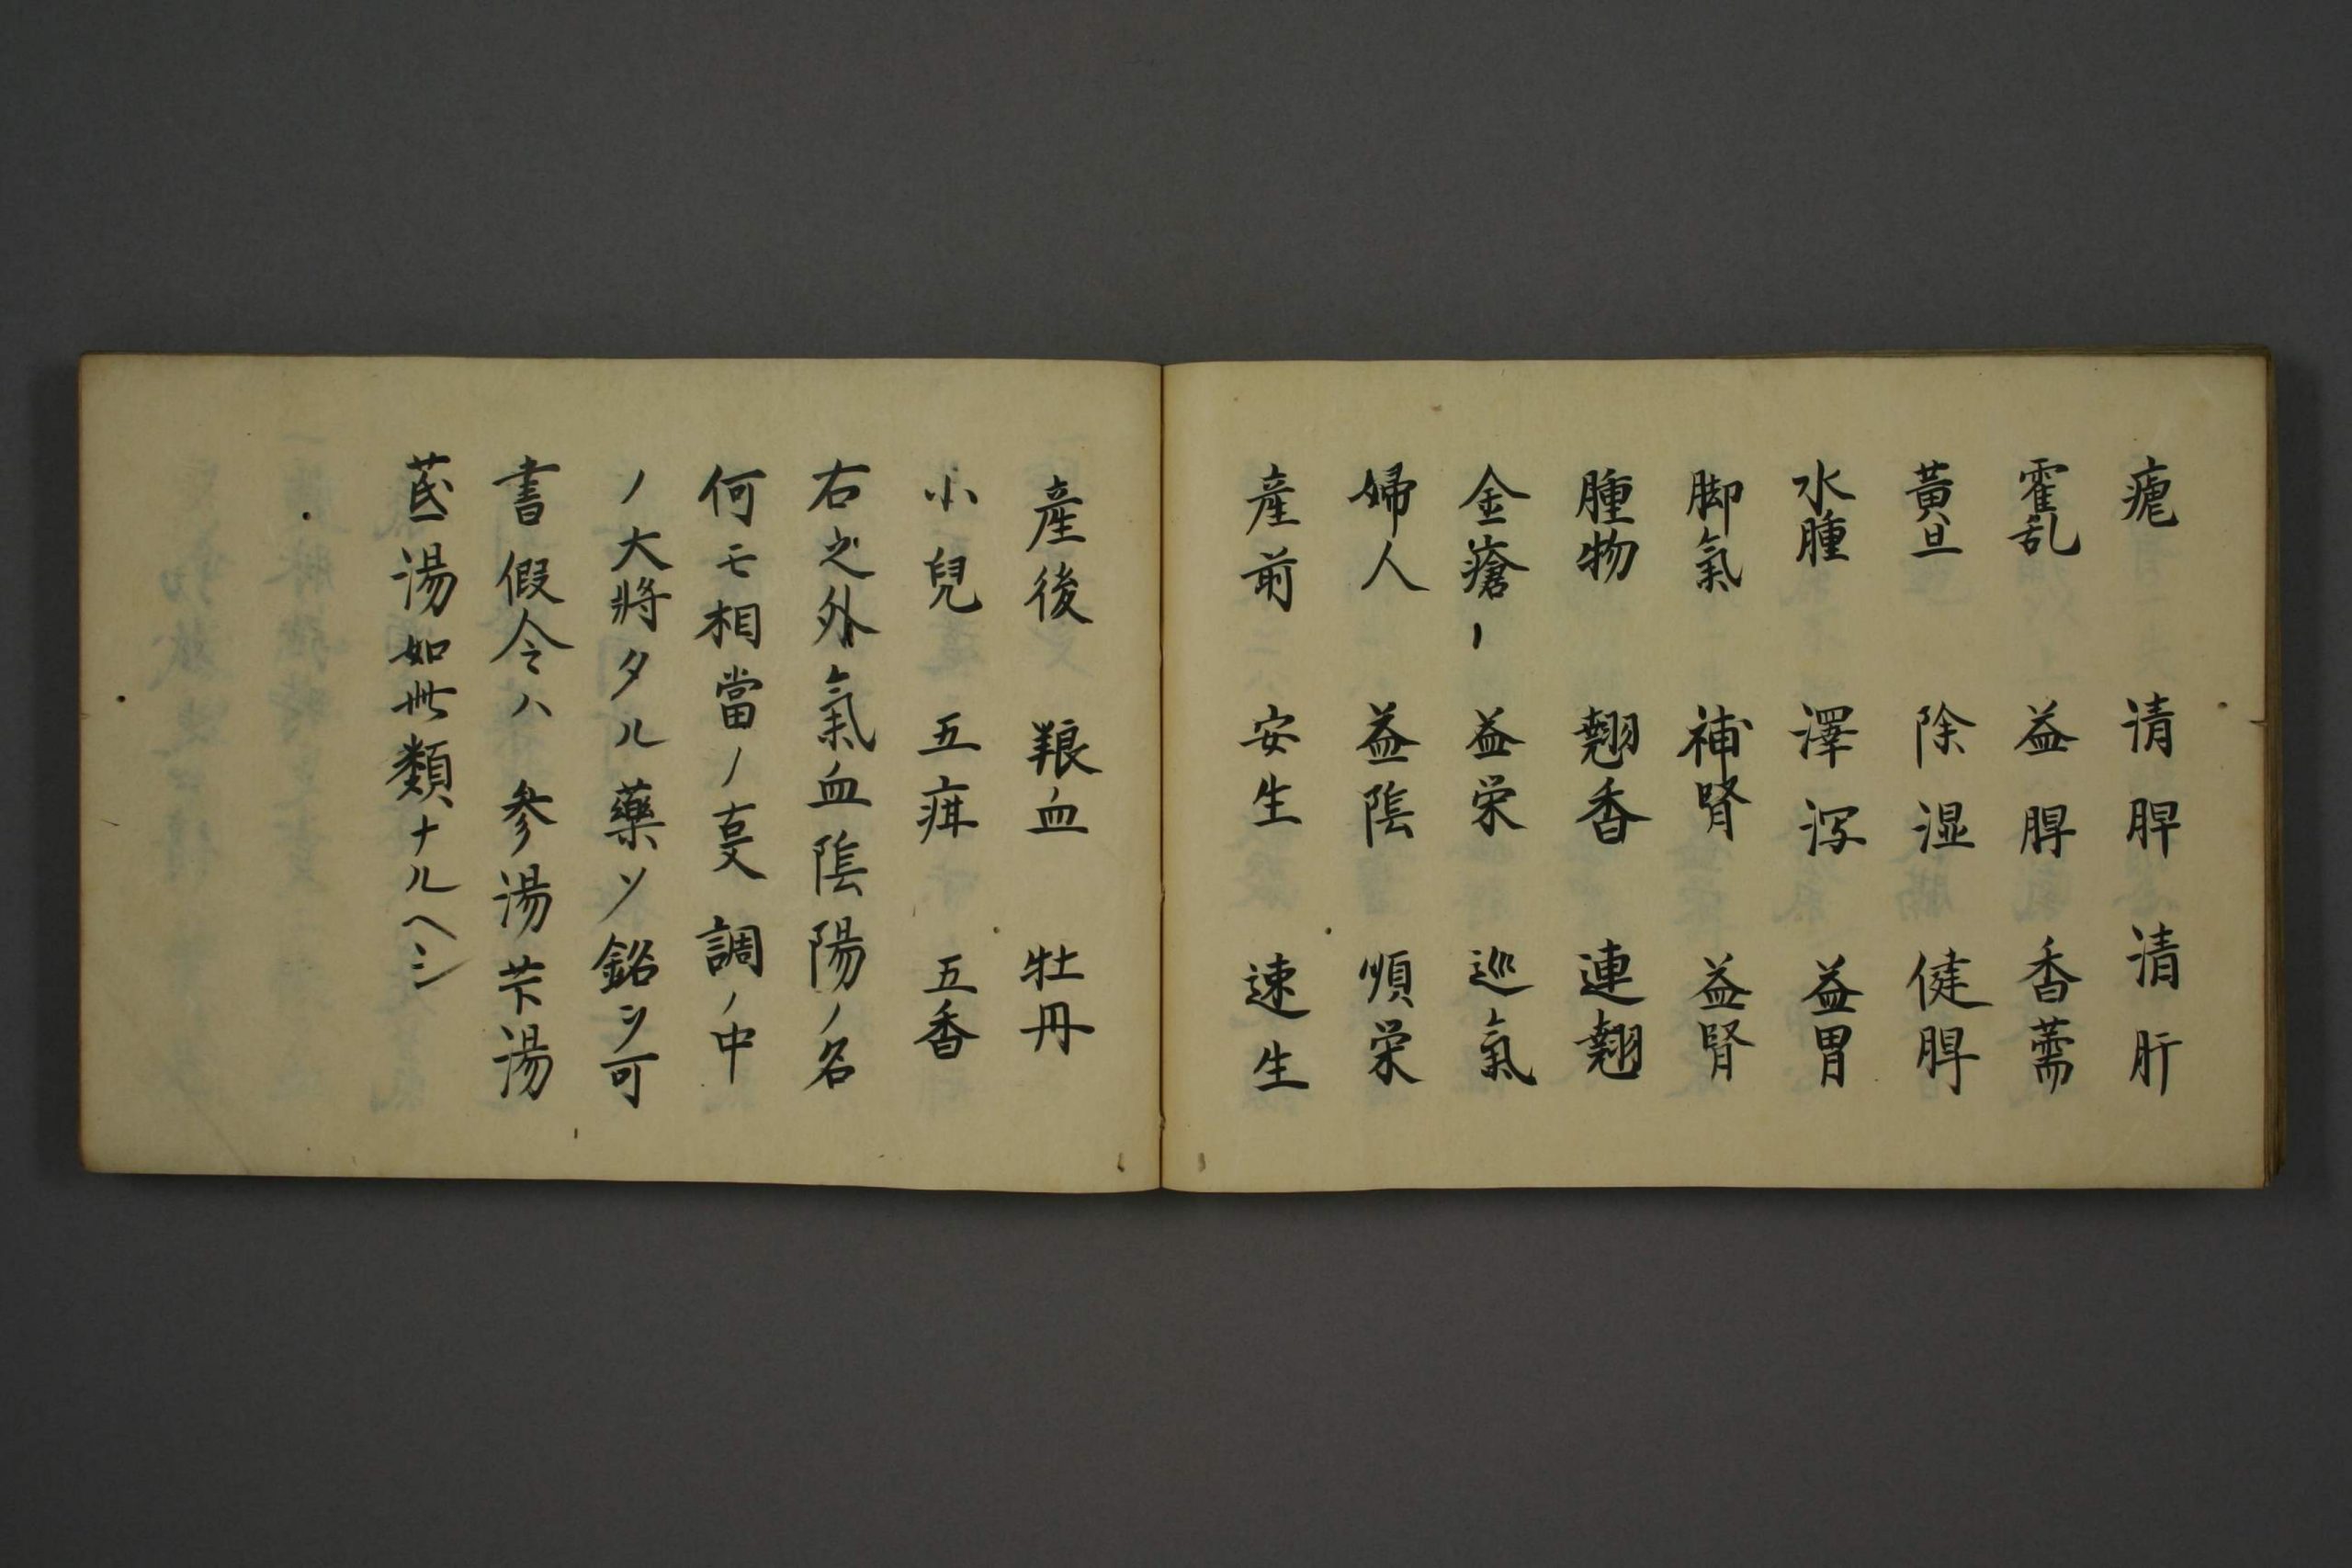 瘧 清脾 清肝
霍乱 益脾 香薷
黄旦 除湿 健脾
水腫 澤泻 益胃
脚氣 補腎 益腎
腫物 翹香 連翹
金瘡 益栄 巡氣
婦人 益陰 順栄
産前 安生 速生
産後 血 牡丹
小兒 五疳 五香
右之外氣血陰陽ノ名
何モ相當ノ叓調ノ中
ノ大將タル藥ヲ銘ヲ可
書假令ハ 参湯芐湯
湯如此類ナルヘシ